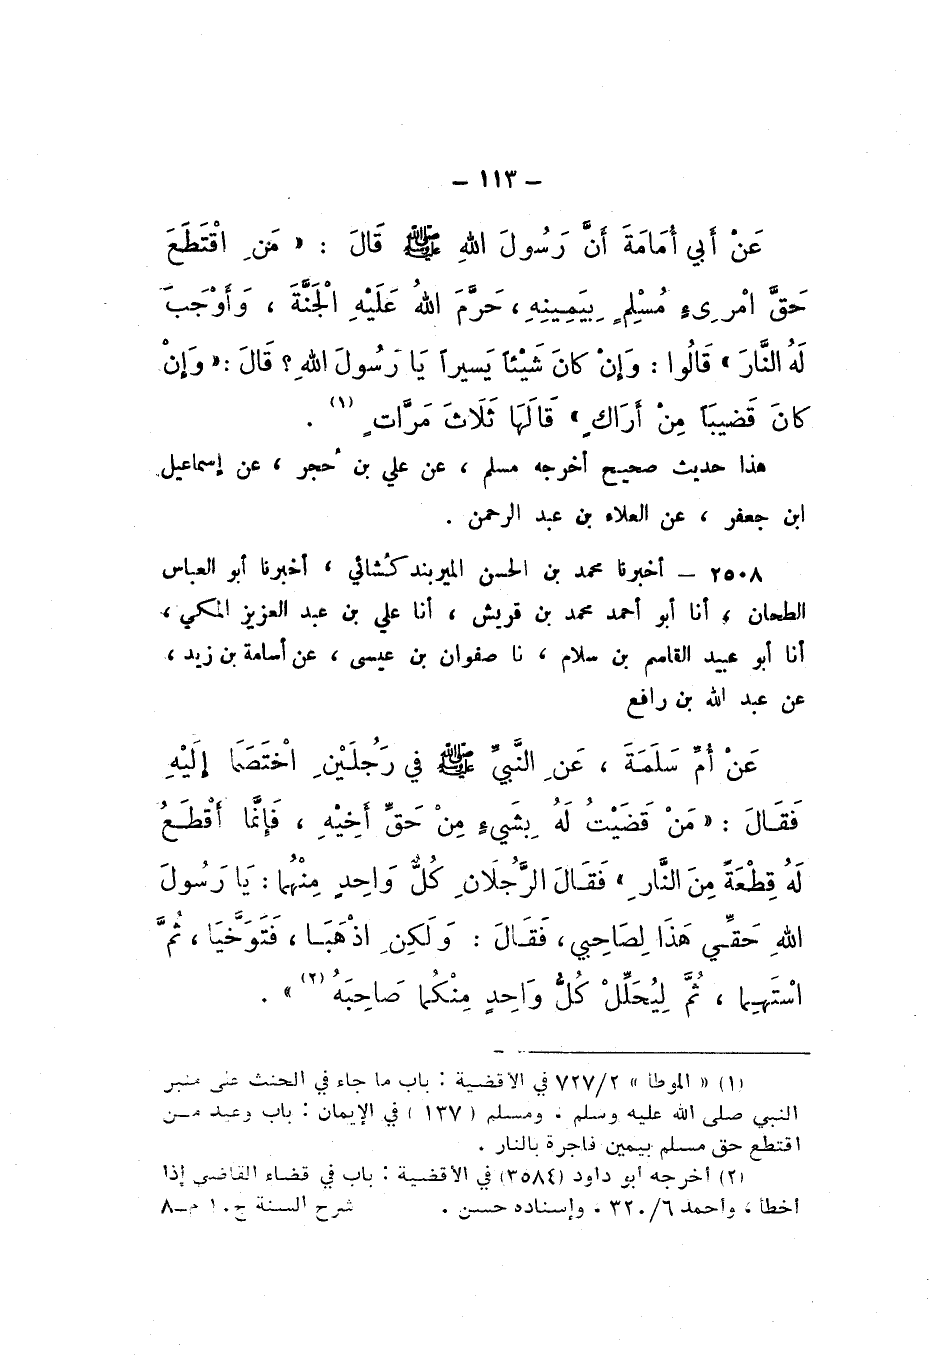 – ١١٣ –
عَنْ أَبِي أُمَامَةَ أَنَّ رَسُولَ اللهِ ﷺ قَالَ : « مَنِ اقْتَطَعَ
حَقَّ امْرِىءٍ مُسْلِمٍ بِيَمِينِهِ ، حَرَّمَ اللهُ عَلَيْهِ الْجَنَّةَ ، وَأَوْجَبَ
لَهُ النَّارَ » قَالُوا : وَإِنْ كَانَ شَيْئاً يَسِيراً يَا رَسُولَ اللهِ ؟ قَالَ : « وَإِنْ
كَانَ قَضِيبَاً مِنْ أَرَاكٍ » قَالَهَا ثَلَاثَ مَرَّاتٍ (١) .
هذا حديث صحيح أخرجه مسلم ، عن علي بن حُجر ، عن إسماعيل
ابن جعفر ، عن العلاء بن عبد الرحمن .
٢٥٠٨ – أخبرنا محمد بن الحسن الميربند كُشائي ، أخبرنا أبو العباس
الطحان ، أنا أبو أحمد محمد بن قريش ، أنا علي بن عبد العزيز المكي ،
أنا أبو عبيد القاسم بن سلام ، نا صفوان بن عيسى ، عن أسامة بن زيد ،
عن عبد الله بن رافع
عَنْ أُمِّ سَلَمَةَ ، عَنِ النَّبِيِّ ﷺ فِي رَجُلَيْنِ اخْتَصَمَا إِلَيْهِ
فَقَالَ : « مَنْ قَضَيْتُ لَهُ بِشَيءٍ مِنْ حَقِّ أَخِيْهِ ، فَإِنَّمَا أَقْطَعُ
لَهُ قِطْعَةً مِنَ النَّارِ » فَقَالَ الرَّجُلَانِ كُلُّ وَاحِدٍ مِنْهُمَا : يَا رَسُولَ
اللهِ حَقِّي هَذَا لِصَاحِبي ، فَقَالَ : وَلَكِنِ اذْهَبَا ، فَتَوَخَّيَا ، ثُمَّ
اسْتَهِمَا ، ثُمَّ لِيُحَلِّلْ كُلُّ وَاحِدٍ مِنْكُمَا صَاحِبَهُ (٢) » .
(١) « الموطأ » ٧٢٧/٢ في الاقضية : باب ما جاء في الحنث على منبر
النبي صلى الله عليه وسلم ، ومسلم ( ١٣٧ ) في الإيمان : باب وعيد من
اقتطع حق مسلم بيمين فاجرة بالنار .
(٢) أخرجه أبو داود (٣٥٨٤) في الأقضية : باب في قضاء القاضي إذا
أخطأ ، وأحمد ٣٢٠/٦ ، وإسناده حسن . شرح السنة ج١٠ م–٨